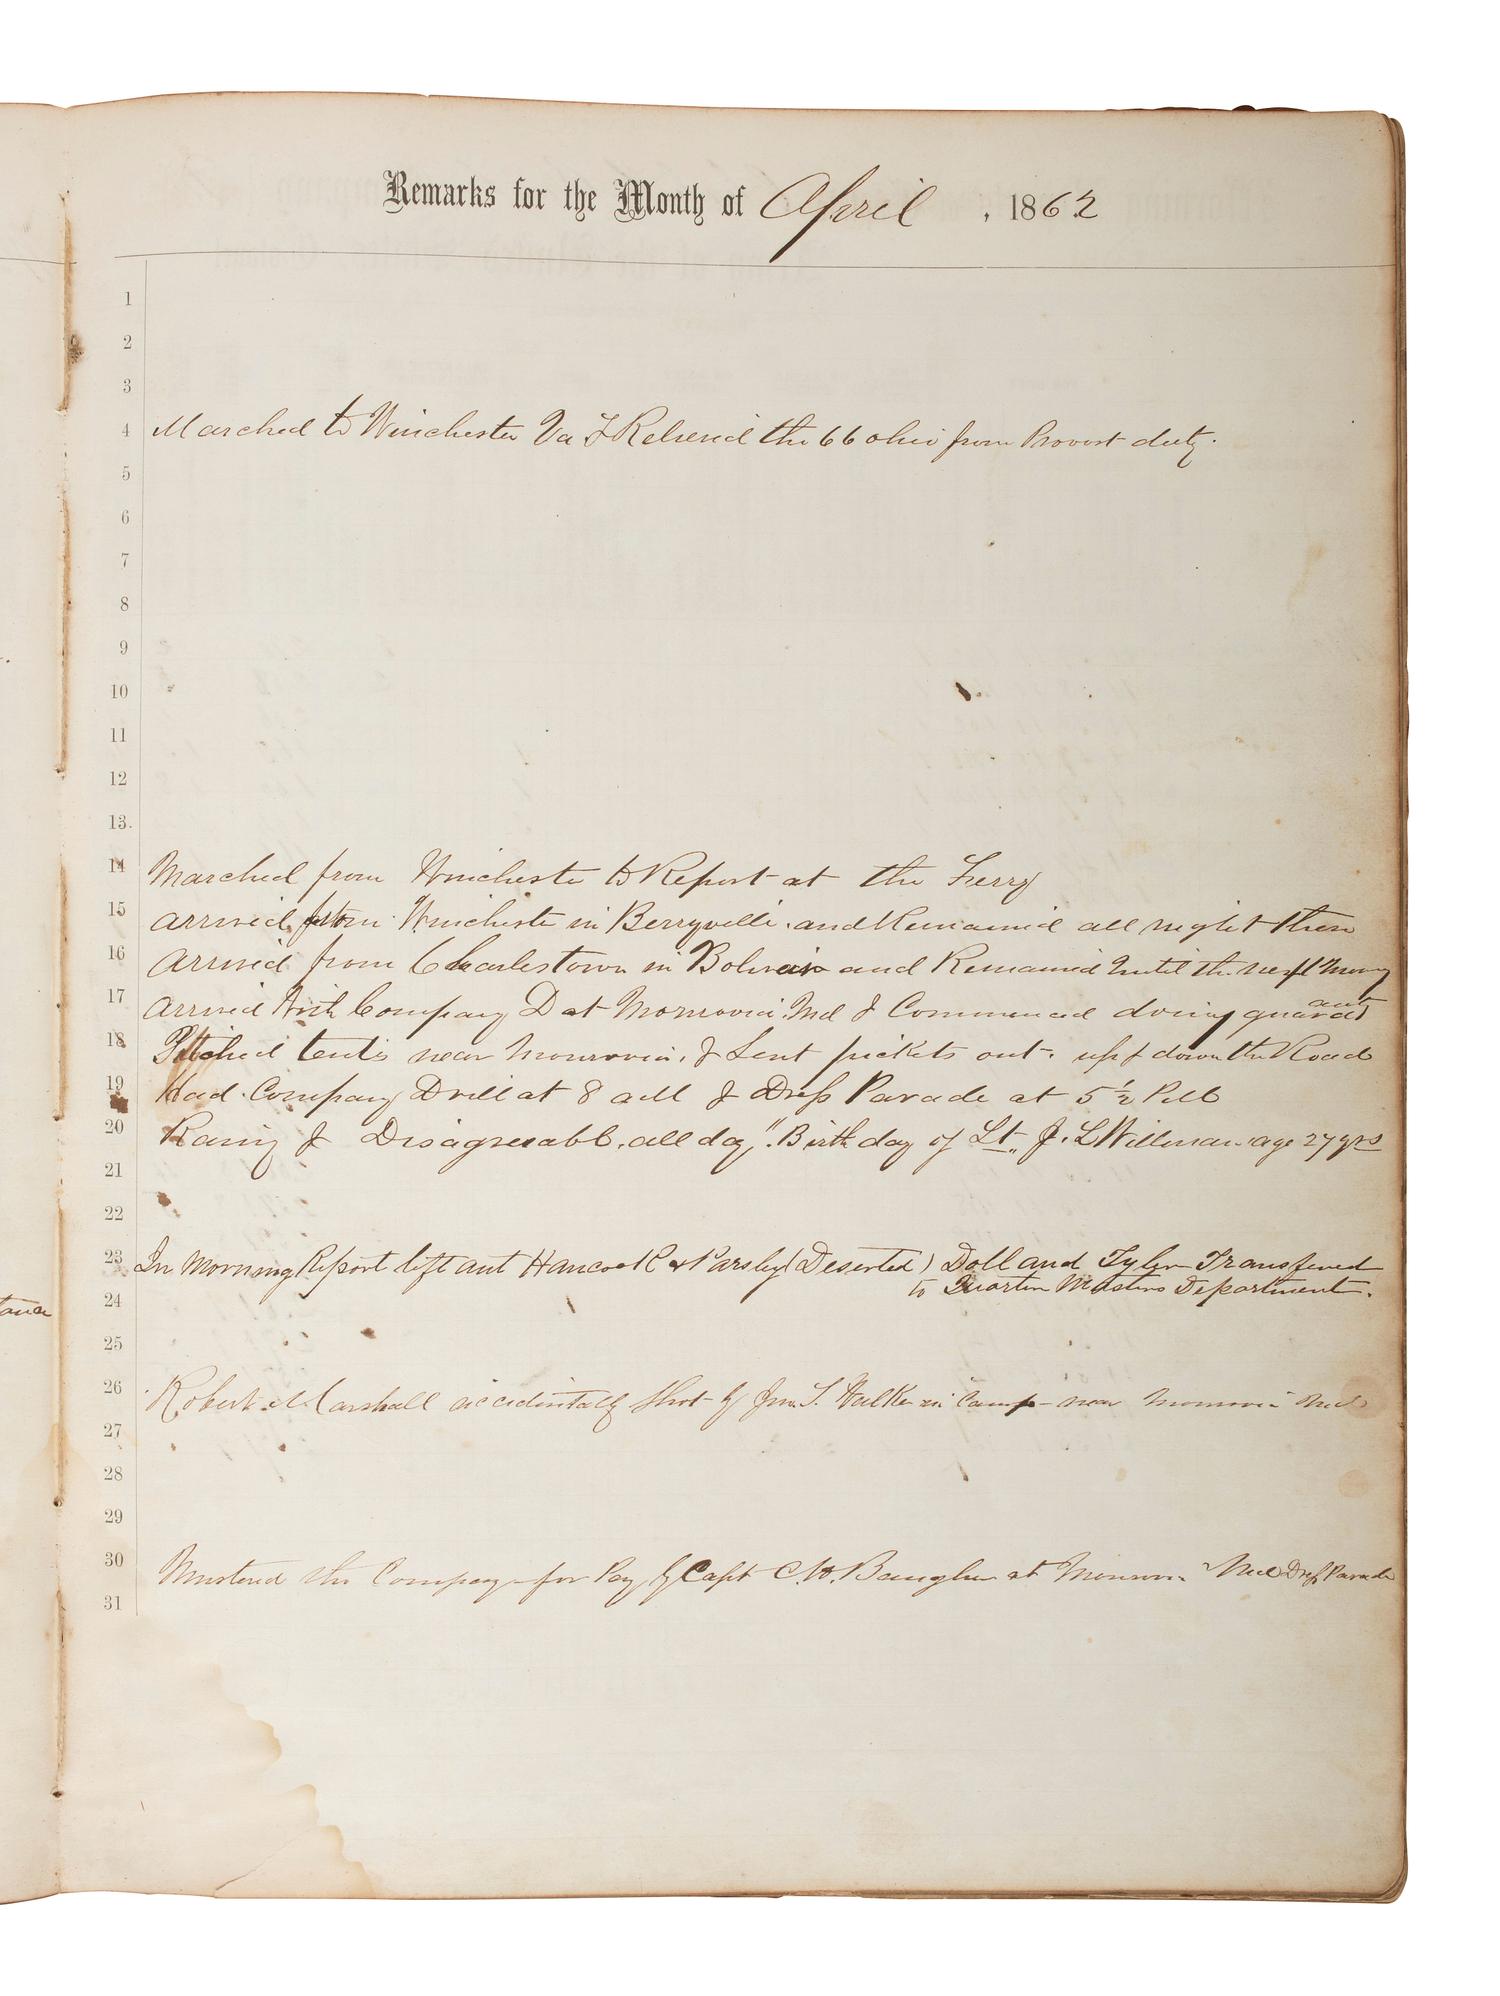 Remarks for the Month of April, 1862
1
2
3
4 Marched to Winchester Va & Releived the 66 ohio from Provost duty.
5
6
7
8
9
10
11
12
13.
14 Marched from Winchester to Report at the Ferry
15 arrived from Winchester in Berryville and Remained all night then
16 Arrived from Charlestown in Bolivar and Remained Until the next
17 Arrived With Company D at Monrovia Md & Commenced doing guard
18 Pitched tents near Monrovia, & Sent pickets out. up & down the Road
19 Had Company Drill at 8 AM & Dress Parade at 5 ½ PM
20 Rainy & Disagreeabl. all day, Birth day of Lt. J. L Willman age 27 yrs
21
22
23 In Morning Report left out Hancock & Parsly (Deserted) Doll and Tyler Transfered
to Quarter Masters Department.
24
25
26 Robert Marshall accidintally Shot by Jno. T. Walker in Camp near Monrovia Md
27
28
29
30 Mustered the Company for Pay by Capt C. W. Baugher at Monrovia Md Dress Parade
31